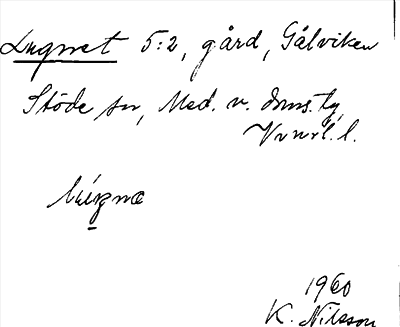 Lugnet 5:2, gård, Gålviken
Stöde sn, Med. v. dms. tg,
Vvnrl. l.
1960
K. Nilsson